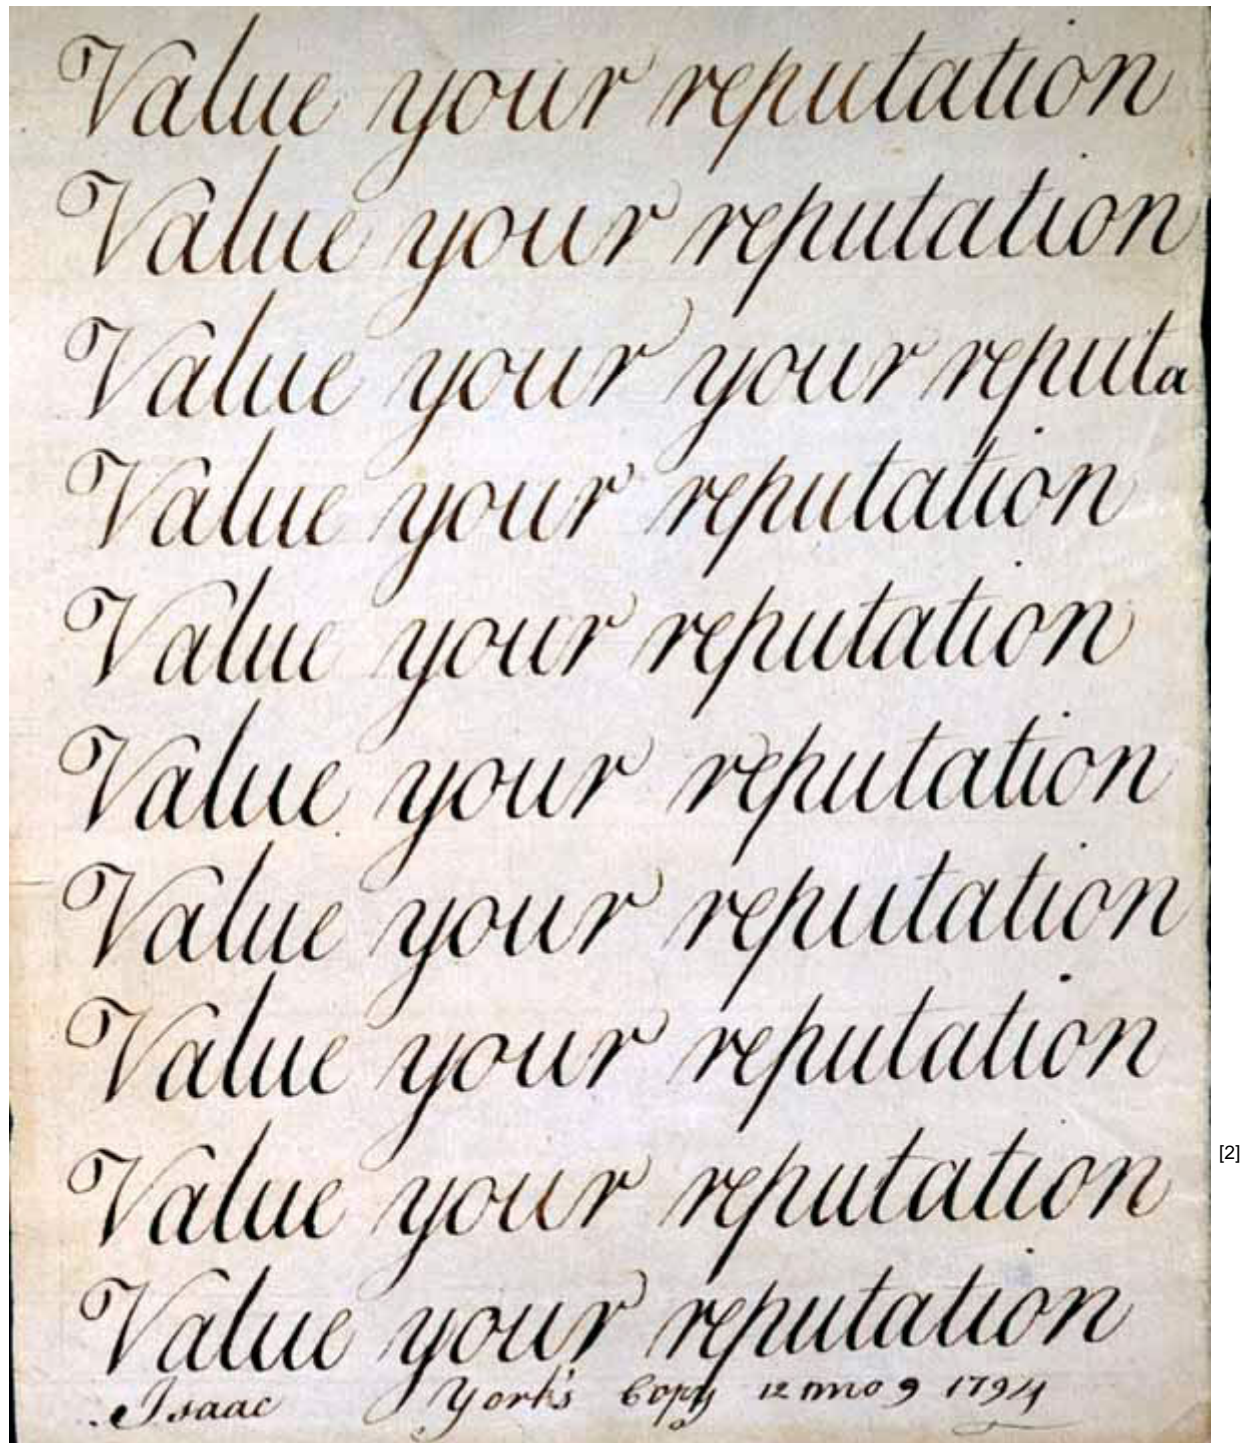 Value your reputation
Value your reputation
Value your your reputa
Value your reputation
Value your reputation
Value your reputation
Value your reputation
Value your reputation
Value your reputation
Value your reputation
Isaac York's Copy 12 mo 9 1794
[2]